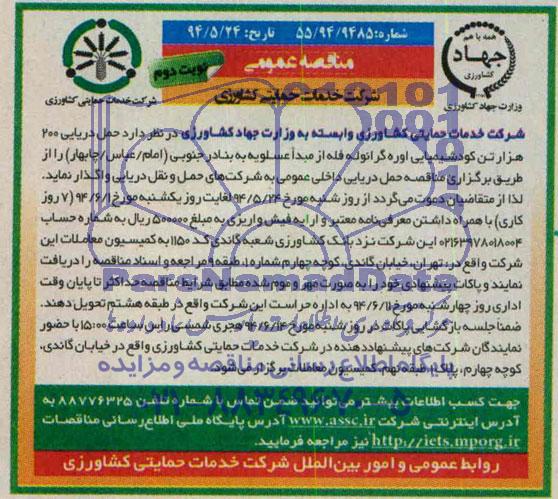 شماره: ۵۵/۹۴/۹۴۸۵ تاریخ: ۹۴/۵/۲۴
همه با هم
جهاد
کشاورزی
وزارت جهاد کشاورزی
مناقصه عمومی
نوبت دوم
شرکت خدمات حمایتی کشاورزی
شرکت خدمات حمایتی کشاورزی
شرکت خدمات حمایتی کشاورزی وابسته به وزارت جهاد کشاورزی در نظر دارد حمل دریایی ۲۰۰
هزار تن کود شیمیایی اوره گرانوله فله از مبدأ عسلویه به بنادر جنوبی (امام/عباس/چابهار) را از
طریق برگزاری مناقصه حمل دریایی داخلی عمومی به شرکت‌های حمل و نقل دریایی واگذار نماید.
لذا از متقاضیان دعوت می‌گردد از روز شنبه مورخ ۹۴/۵/۲۴ لغایت روز یکشنبه مورخ ۹۴/۶/۱ (۷ روز
کاری) با همراه داشتن معرفی‌نامه معتبر و ارایه فیش واریزی به مبلغ ۵۰۰۰۰۰ ریال به شماره حساب
۰۲۱۶۳۹۷۸۰۱۸۰۰۴ این شرکت نزد بانک کشاورزی شعبه گاندی کد ۱۱۵۰ به کمیسیون معاملات این
شرکت واقع در، تهران، خیابان گاندی، کوچه چهارم شماره ۱، طبقه ۹ مراجعه و اسناد مناقصه را دریافت
نمایند و پاکات پیشنهادی خود را به صورت مهر و موم شده مطابق شرایط مناقصه حداکثر تا پایان وقت
اداری روز چهارشنبه مورخ ۹۴/۶/۱۱ به اداره حراست این شرکت واقع در طبقه هشتم تحویل دهند.
ضمناً جلسه بازگشایی پاکات در روز شنبه مورخ ۹۴/۶/۱۴ هجری شمسی راس ساعت ۱۵:۰۰ با حضور
نمایندگان شرکت‌های پیشنهاددهنده در شرکت خدمات حمایتی کشاورزی واقع در خیابان گاندی،
کوچه چهارم، پلاک ۱، طبقه نهم، کمیسیون معاملات برگزار می‌شود.
ParsNamadData
پایگاه اطلاع رسانی مناقصه و مزایده
جهت کسب اطلاعات بیشتر می‌توانید ضمن تماس با شماره تلفن ۸۸۷۷۶۳۲۵ به
آدرس اینترنتی شرکت www.assc.ir آدرس پایگاه ملی اطلاع‌رسانی مناقصات
http://iets.mporg.ir نیز مراجعه فرمایید.
روابط عمومی و امور بین‌الملل شرکت خدمات حمایتی کشاورزی